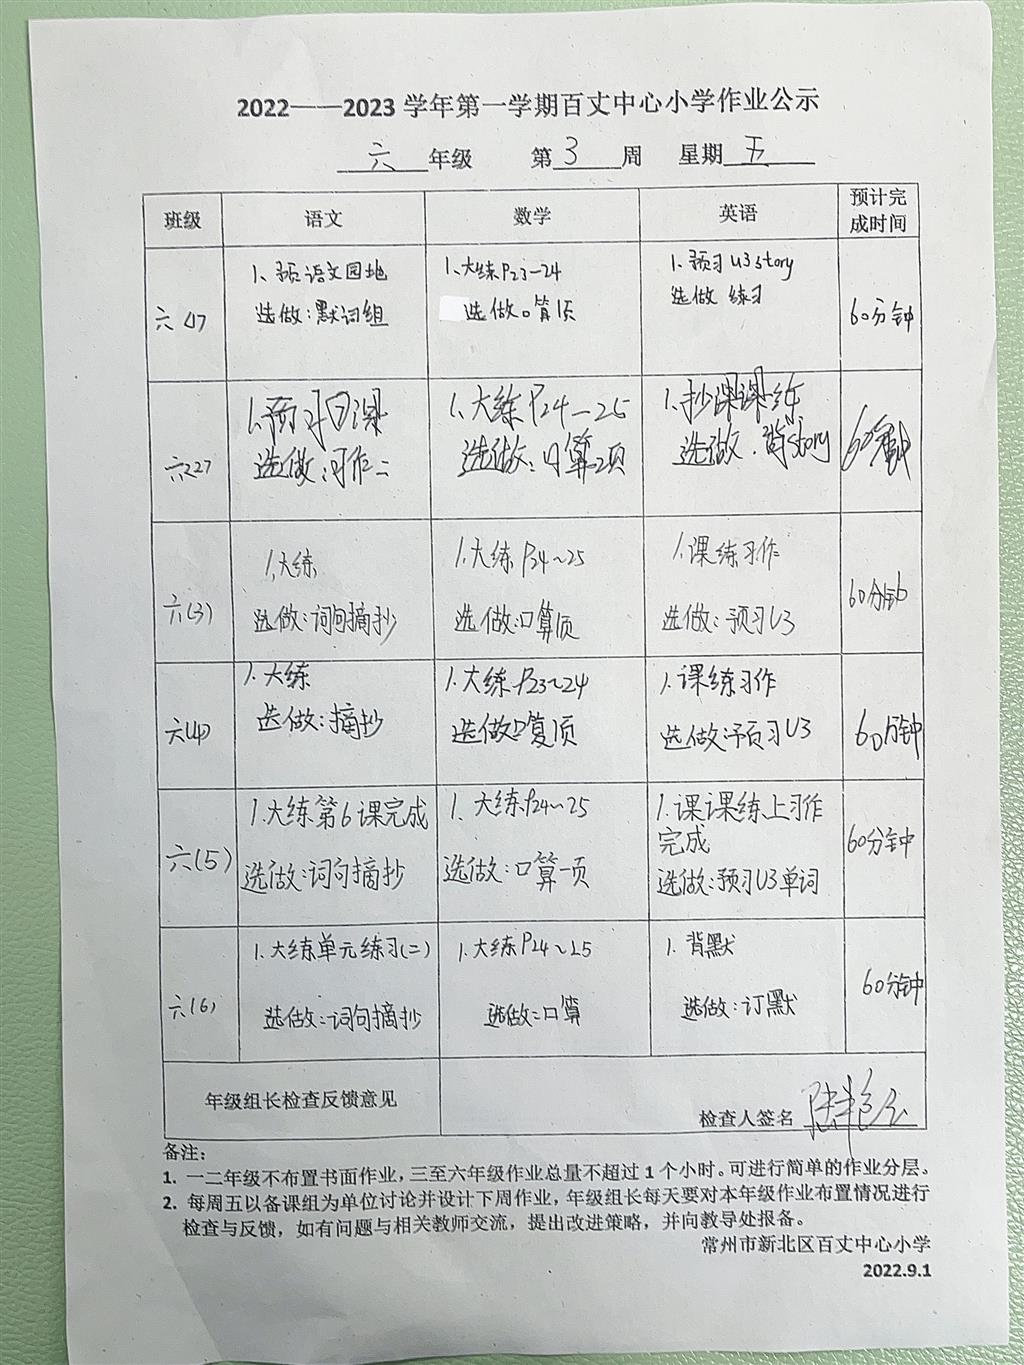 2022——2023 学年第一学期百丈中心小学作业公示
六 年级 第 3 周 星期 五
班级 语文 数学 英语 预计完成时间
六(1) 1、预语文园地 1、大练P23-24 1、预习U3 story 60分钟
选做:默词组 选做:口算1页 选做 练习
六(2) 1.预习日课 1、大练P24-25 1.抄课课练 60分钟
选做:习作二 选做:口算2页 选做.背story
六(3) 1.大练 1.大练P24~25 1.课练习作 60分钟
选做:词句摘抄 选做:口算1页 选做:预习U3
六(4) 1.大练 1.大练P23~24 1.课练习作 60分钟
选做:摘抄 选做:1页 选做:预习U3
六(5) 1.大练第6课完成 1、大练P24~25 1.课课练上习作 60分钟
完成
选做:词句摘抄 选做:口算一页 选做:预习U3单词
六(6) 1.大练单元练习(二) 1.大练P24~25 1.背默 60分钟
选做:词句摘抄 选做:口算 选做:订默
年级组长检查反馈意见 检查人签名
备注:
1. 一二年级不布置书面作业,三至六年级作业总量不超过 1 个小时。可进行简单的作业分层。
2. 每周五以备课组为单位讨论并设计下周作业,年级组长每天要对本年级作业布置情况进行
检查与反馈,如有问题与相关教师交流,提出改进策略,并向教导处报备。
常州市新北区百丈中心小学
2022.9.1